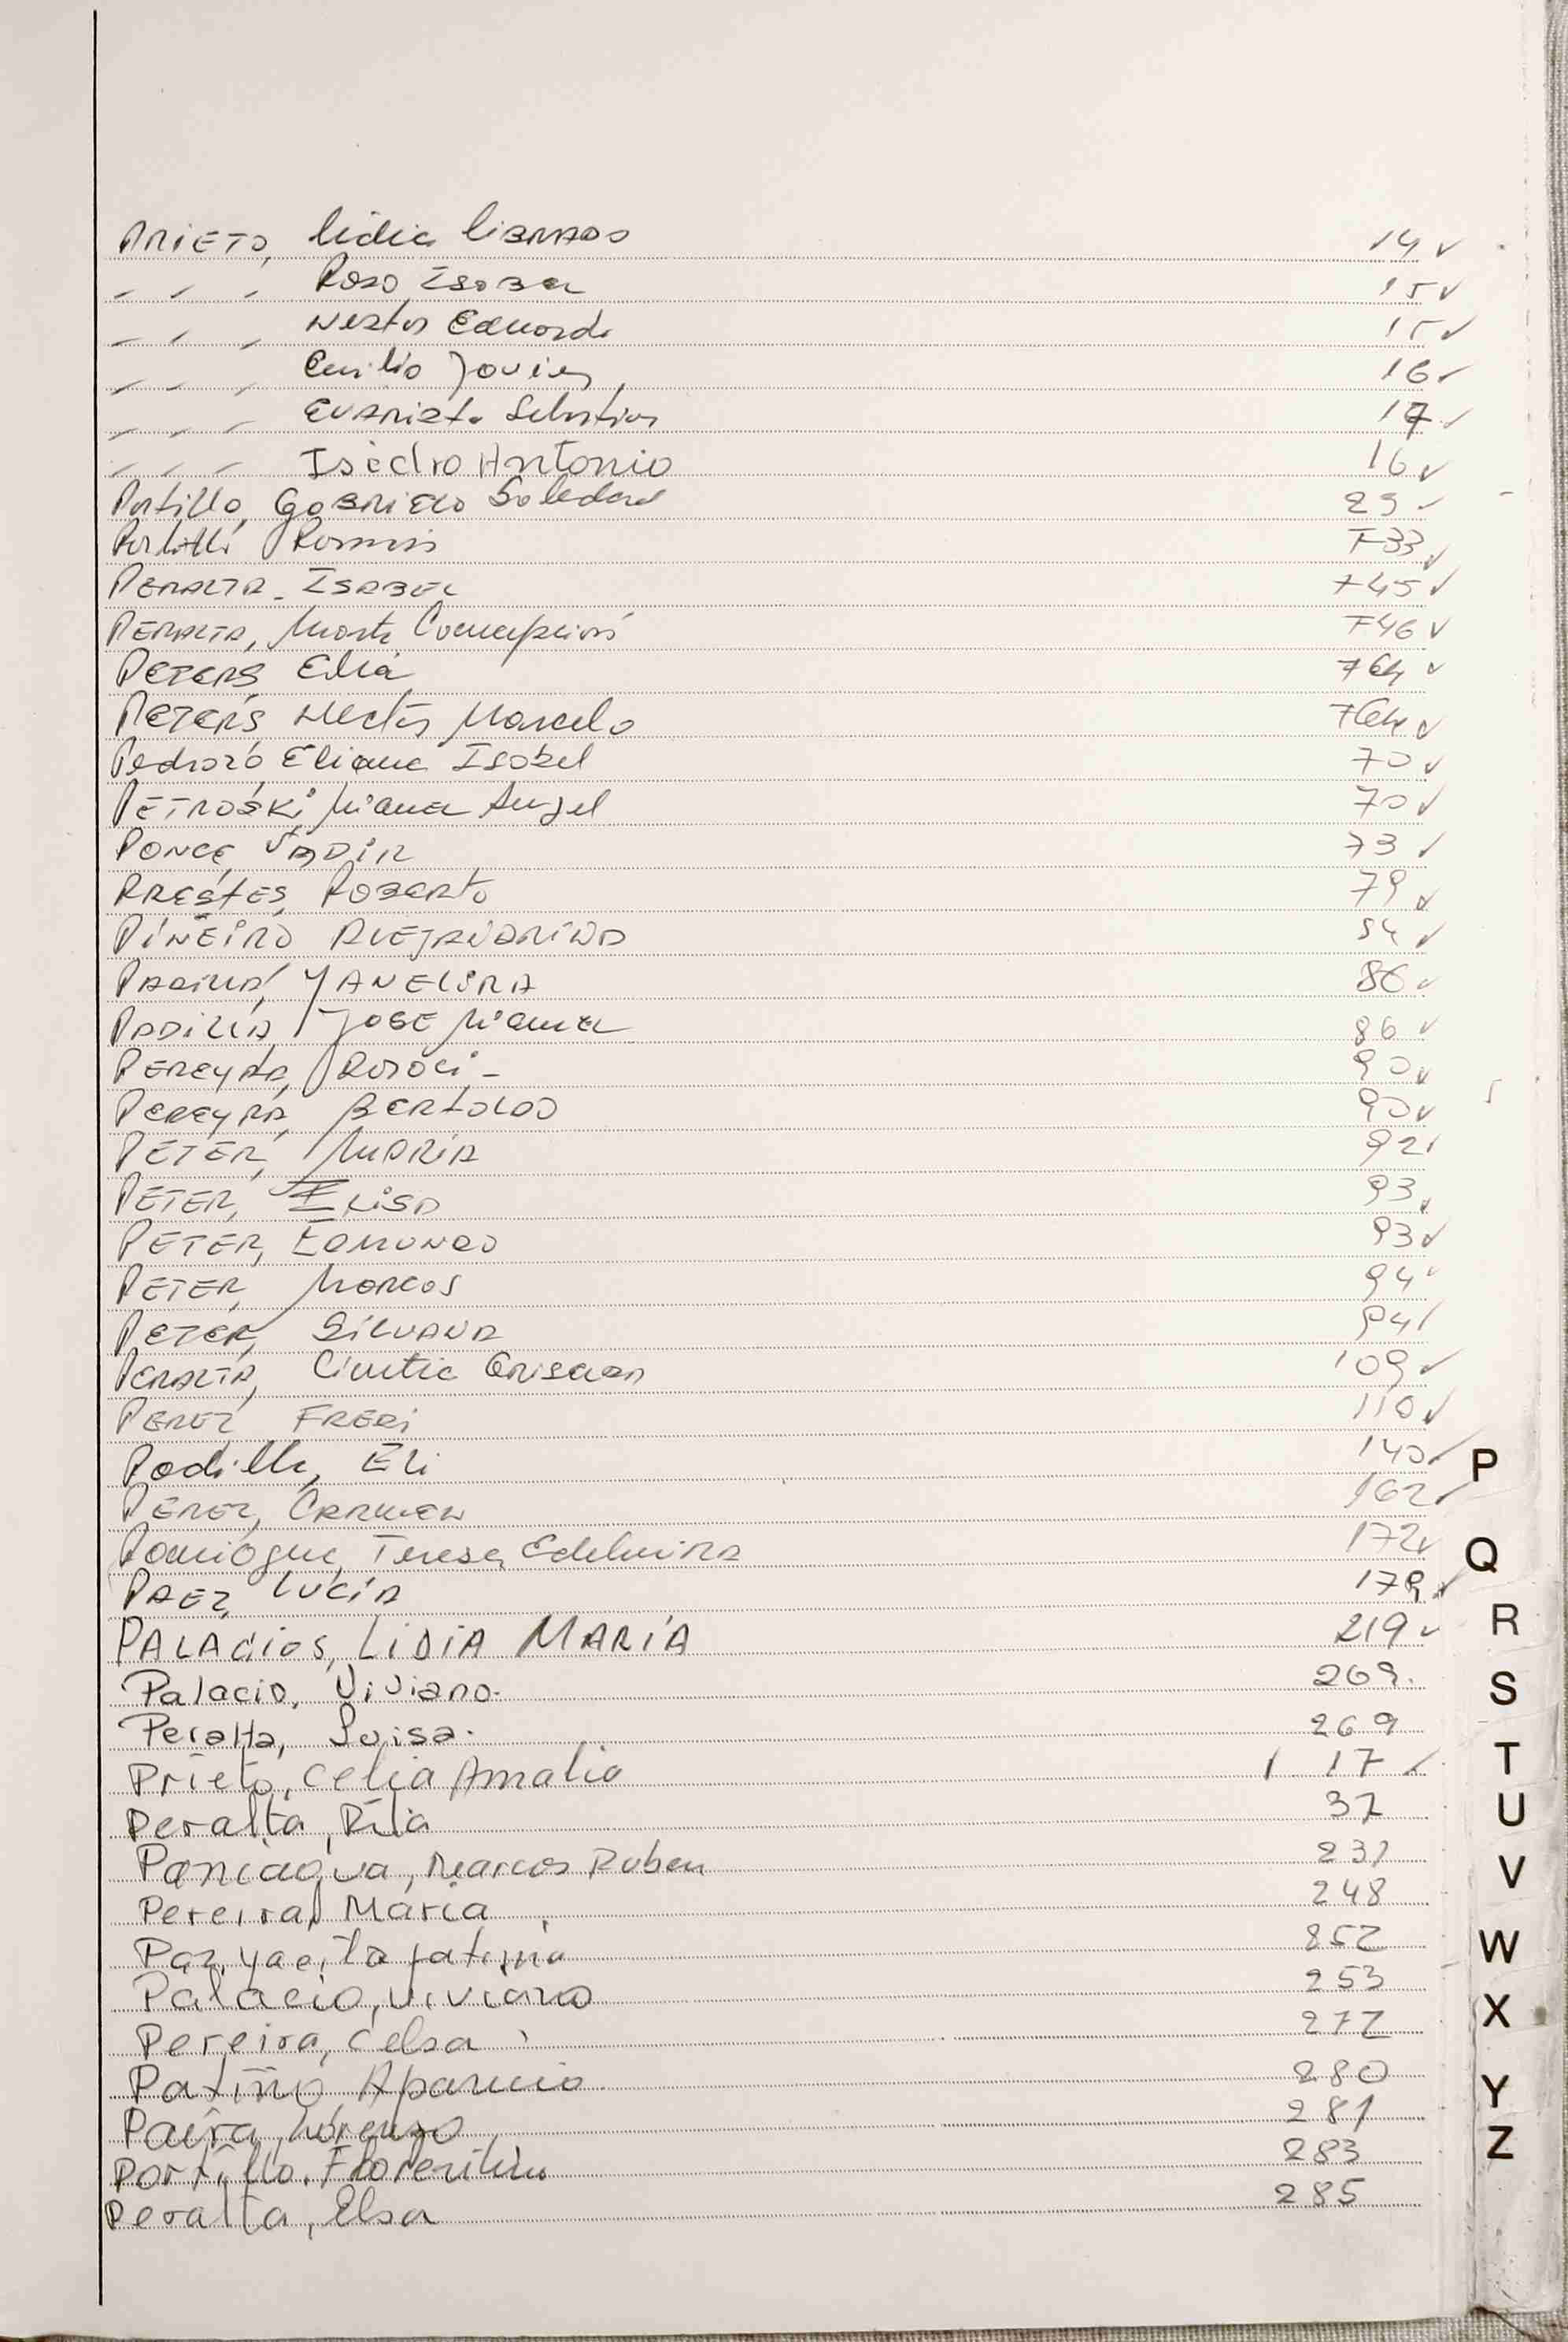 PRIETO, Lidia LIBRADO 14 ✓
〃 〃 〃 Rosa ISABEL 15 ✓
〃 〃 〃 Nestor Eduardo 15 ✓
〃 〃 〃 Emilio Javier 16 ✓
〃 〃 〃 EVARISTO Sebastian 17 ✓
〃 〃 〃 Isidro Antonio 16 ✓
Portillo, GABRIELA Soledad 29 ✓
Romina F33 ✓
PERALTA - ISABEL F45 ✓
PERALTA, Marta Concepción F46 ✓
PETERS Elia F64 ✓
PETERS, Hector Marcelo F64 ✓
Pedrozo, Eliana Isabel 70 ✓
PETROSKI, Miguel Angel 70 ✓
PONCE, JADIR 73 ✓
PRESTES, ROBERTO 79 ✓
PIÑEIRO ALEJANDRINA 84 ✓
PADILLA, YANELIRA 86 ✓
PADILLA, JOSE Miguel 86 ✓
PEREYRA, 90 ✓
PEREYRA, BERTOLDO 90 ✓
PETER, MARIA 92 ✓
PETER, ELISA 93 ✓
PETER, EDMUNDO 93 ✓
PETER, MARCOS 94 ✓
PETER, SILVANA 94 ✓
PERALTA, Cintia GRISELDA 109 ✓
PEREZ, FREDI 110 ✓
Padilla, Eli 140 ✓
PEREZ, CARMEN 162 ✓
Teresa Edelmira 172 ✓
PAEZ, LUCÍA 179 ✓
PALACIOS, LIDIA MARÍA 219 ✓
Palacio, Viviana. 269.
Peralta, Luisa. 269
Prieto, Celia Amalia 1 17 ✓
Peralta, Rita 37
Paniagua, Marcos Ruben 231
Pereira, Maria 248
Paz, 252
Palacio, Viviana 253
Pereira, Celsa 272
Patiño Aparicio 280
Paiva, Lorenzo 281
Portillo, 283
Peralta, Elsa 285
P
Q
R
S
T
U
V
W
X
Y
Z